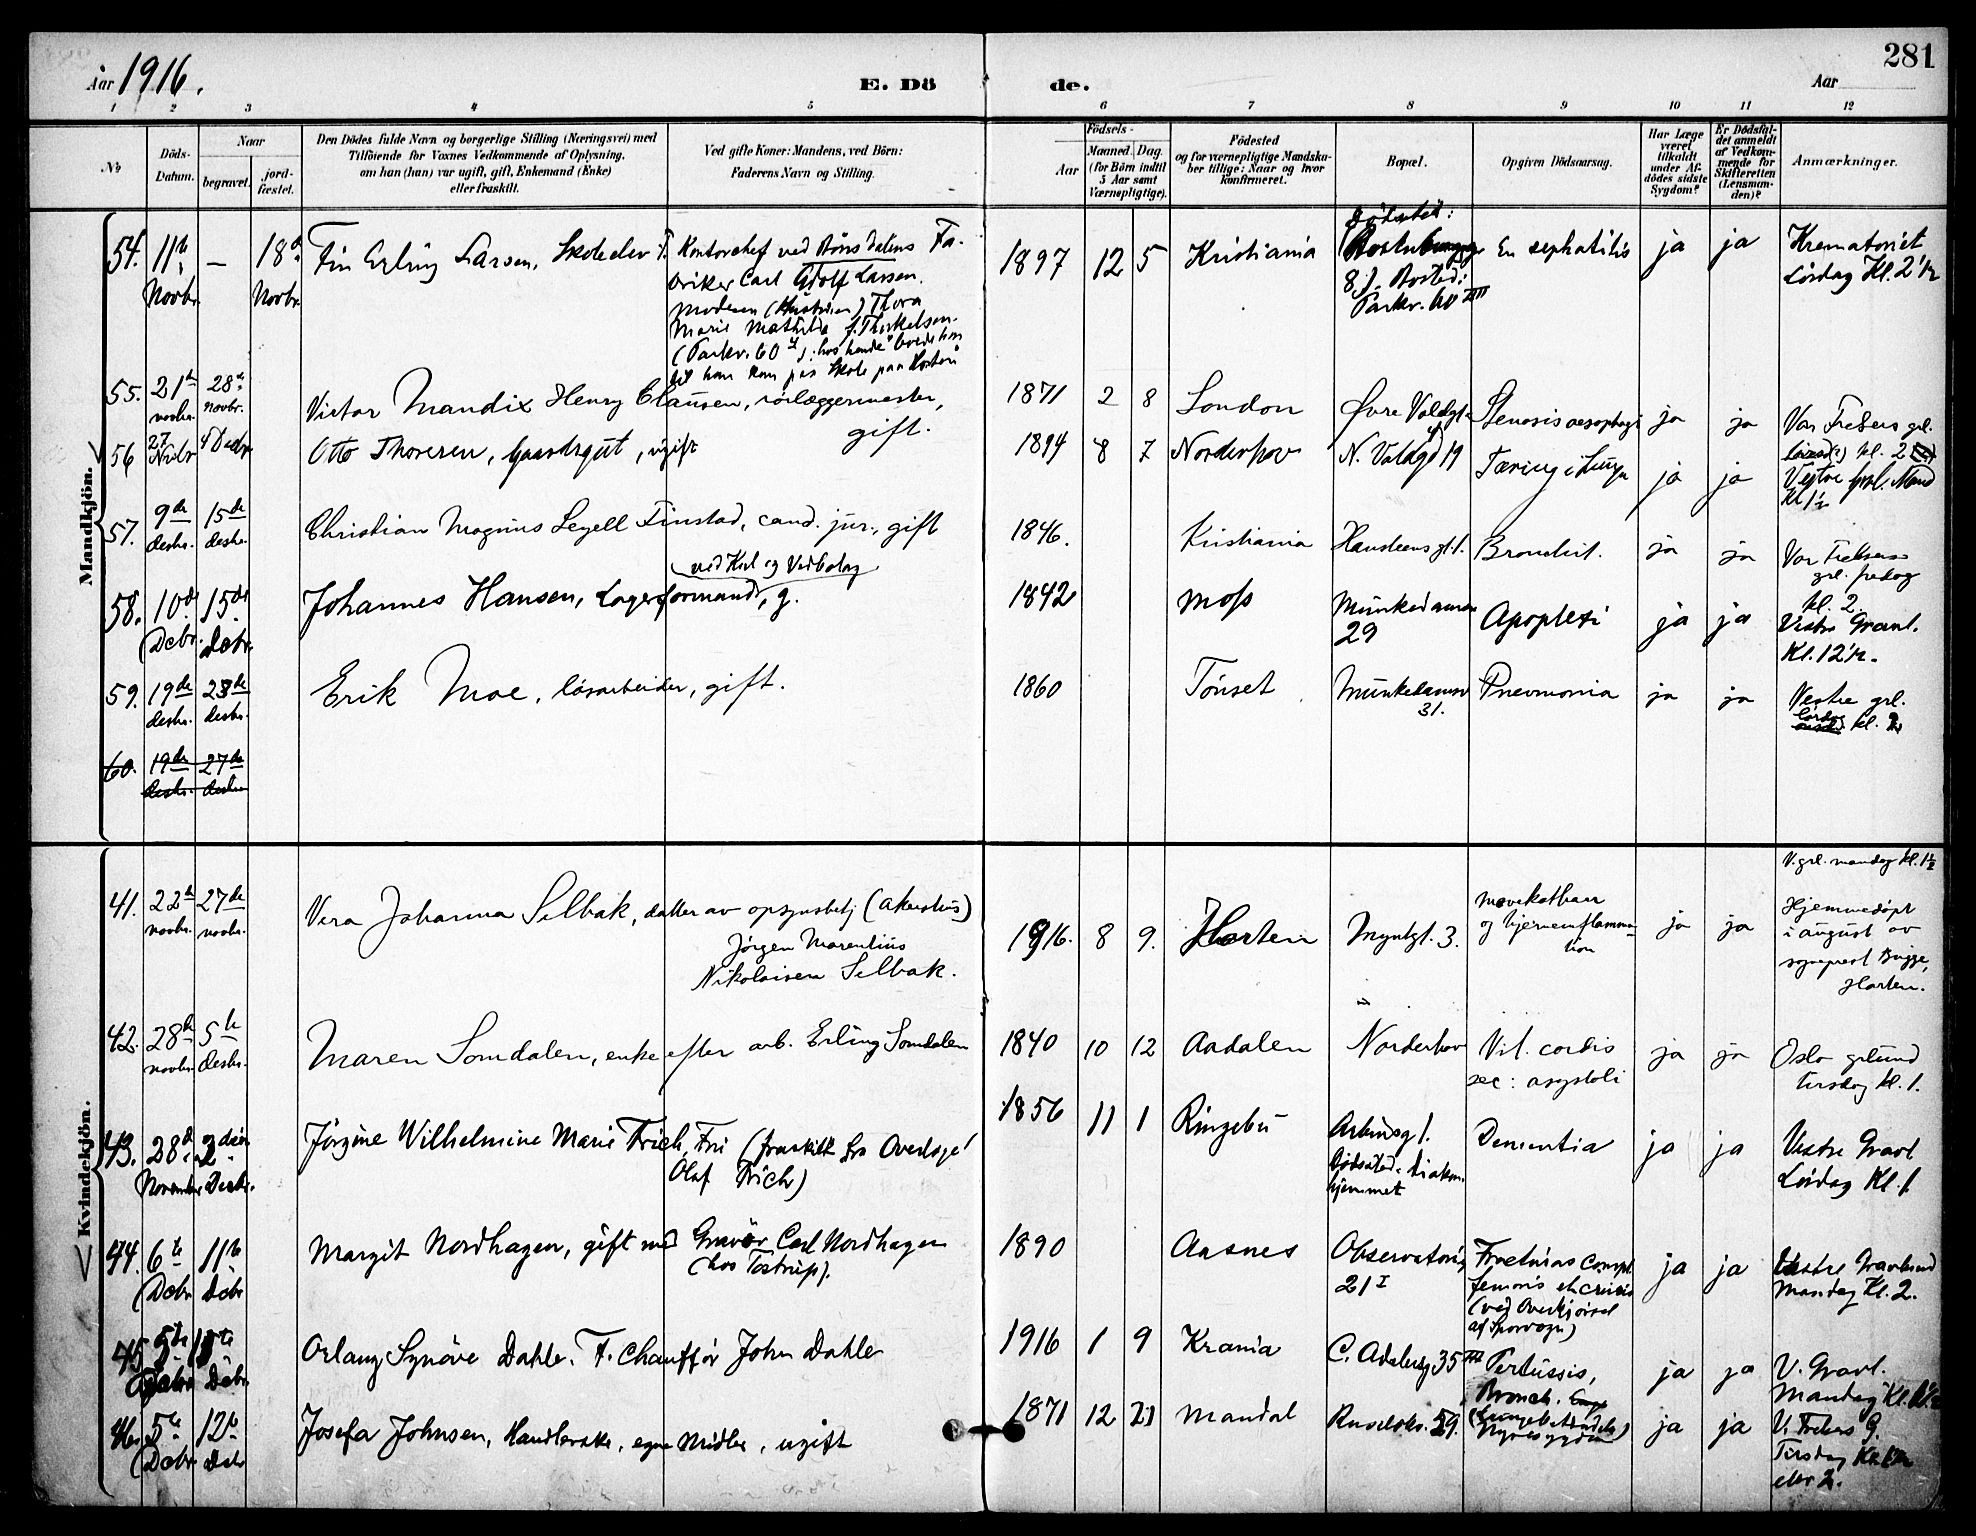 281
Aar 1916.
E. Dö
de.
Aar
1 2 3 4 5 6 7 8 9 10 11 12
No
Döds-Datum.
Naar
begravet.
jord-fæstet.
Den Dödes fulde Navn og borgerlige Stilling (Næringsvei) med
Tilföiende for Voxnes Vedkommende af Oplysning,
om han (hun) var ugift, gift, Enkemand (Enke)
eller fraskilt.
Ved gifte Koner: Mandens, ved Börn:
Faderens Navn og Stilling.
Födsels-
Aar
Maaned. Dag.
(for Börn indtil
5 Aar samt
Værnepligtige).
Födested
og for værnepligtige Mandska-
ber tillige: Naar og hvor
konfirmeret.
Bopæl.
Opgiven Dödsaarsag.
Har Læge
været
tilkaldt
under Af-
dödes sidste
Sygdom?
Er Dödsfal-
det anmeldt
af Vedkom-
mende for
Skifteretten
(Lensman-
den)?
Anmærkninger.
Mandkjön.
54. 11te Novbr. — 18de Novbr. Fin Erling Larsen, Skoleelev F. Kontorchef ved Fa-
briker Carl Adolf Larsen.
Moderen (Hustruen) Thora
Marie Mathilde f. Thorkelsen.
(Parkv. 60
1897 12 5 Kristiania
8). Bosted:
Parkv. 60 III
ja ja Krematoriet
Lördag Kl. 2 1/2
55. 21de novbr. 28de novbr. Victor Mandix Henry Clausen, rörlæggermester,
gift.
1871 2 8 London Øvre Voldgt. Stenosis oesophagi ja ja Vor Frelsers grl.
kl. 2
56 27 Novbr 4 Decbr Otto Thoresen, Gaardsgut, ugift 1894 8 7 Norderhov N. Voldgd 19 Tæring i Lunge ja ja Vestre grl. Mand
Kl 1 1/2
57. 9de desbr. 15de desbr. Christian Magnus Segell Finstad, cand. jur., gift 1846. Kristiania Hansteensgt. 1. Bronchit. ja ja Vor Frelsers
grl. fredag
kl. 2.
ved Kul og Vedbolag
58. 10de Decbr. 15de Decbr. Johannes Hansen, Lagerformand, g. 1842 Moss Munkedamsv
29
Apoplexi ja ja Vestre Gravl.
Kl. 12 1/2.
59. 19de desbr. 23de desbr. Erik Moe, lösarbeider, gift. 1860 Tönset Munkedamsv
31.
Pnevmonia ja ja Vestre grl.
lördag kl. 2
60. 19de desbr. 27de desbr
Kvindekjön.
V. grl. mandag kl. 1 1/2
41. 22de novbr. 27de novbr. Vera Johanna Selbak, datter av opsynsbetj (Akershus)
Jörgen Marentius
Nikolaisen Selbak.
1916. 8 9. Horten Myntgt. 3. Mavekatharr
og hjerneinflamma-
tion
ja ja Hjemmedöpt
i august av
sogneprest Bugge,
Horten.
42. 28de novbr. 5te desbr. Maren Somdalen, enke efter arb. Erling Somdalen 1840 10 12 Aadalen Norderhov Vit. cordis
sec: asystoli
ja ja Oslo grlund
tirsdag kl. 1.
43. 28de November 2den Decbr. Jörgine Wilhelmine Marie Frich, Fru (fraskilt fra Overlege
Olaf Frich)
1856 11 1 Ringebu Arbinsgt 1.
Dödssted: Diakon-
hjemmet
Dementia ja ja Vestre Gravl
Lördag Kl. 1
44. 6te Decbr 11te Decbr Margit Nordhagen, gift med Gravör Carl Nordhagen
(hos Tostrup).
1890 Aasnes Observatorig
21 I
Fracturas compl.
femoris et cruris
(ved Overkjörsel
af Sporvogn)
ja ja Vestre Gravlund
Mandag Kl. 2.
45 Decbr Orlaug Synöve Dahle. F. Chaufför John Dahle 1916 1 9 Krania C. Adelersg 35 III Pertussis,
Bronch.
ja ja V. Gravl.
Mandag Kl.
46. 5te Decbr 12te Decbr Josefa Johnsen, Handlerske, egne Midler, ugift 1871 12 21 Mandal Ruselökv. 59. ja ja V. Frelsers G.
Tirsdag Kl.
eller 2.